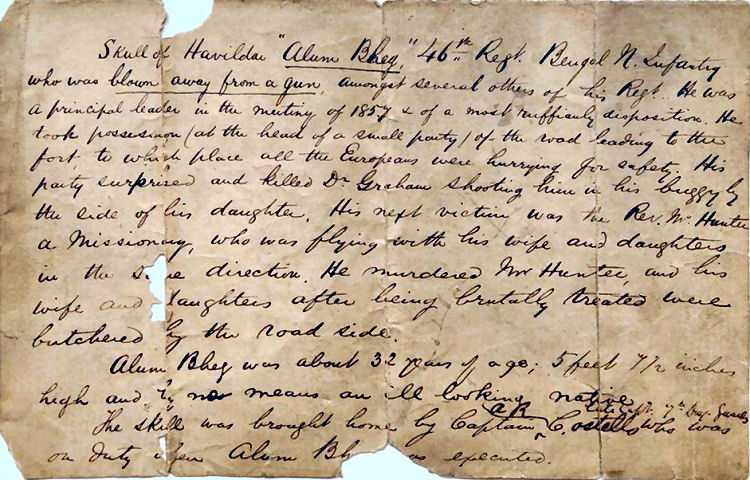 Skull of Havildar "Alum Bheg," 46th Regt. Bengal N. Infantry
who was blown away from a gun, amongst several others of his Regt. He was
a principal leader in the mutiny of 1857 & of a most ruffianly disposition. He
took possession (at the head of a small party) of the road leading to the
fort, to which place all the Europeans were hurrying for safety. His
party surprised and killed Dr. Graham shooting him in his buggy by
the side of his daughter. His next victim was the Rev. Mr. Hunter
a Missionary, who was flying with his wife and daughters
in the s e direction. He murdered Mr Hunter, and his
wife and daughters after being brutally treated were
butchered by the road side.
Alum Bheg was about 32 years of age; 5 feet 7 1/2 inches
high and by no means an ill looking native
The skull was brought home by Captain AR Costello late Capt. 7th Drag. Guards, who was
on duty when Alum Bh as executed.